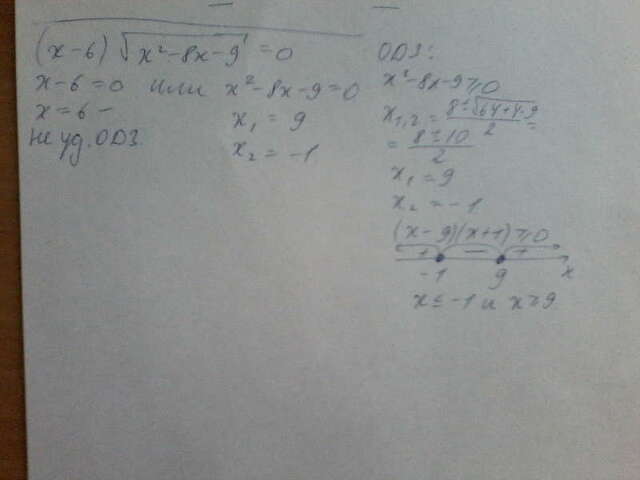 (x-6) √(x²-8x-9) = 0
x-6=0 или x²-8x-9=0
x=6 –
не уд. ОДЗ.
x₁ = 9
x₂ = -1
ОДЗ:
x²-8x-9⩾0
x₁,₂ = (8±√(64+4·9))/2 =
= (8±10)/2
x₁ = 9
x₂ = -1
(x-9)(x+1)⩾0
+ – +
-1 9 x
x≤-1 и x⩾9